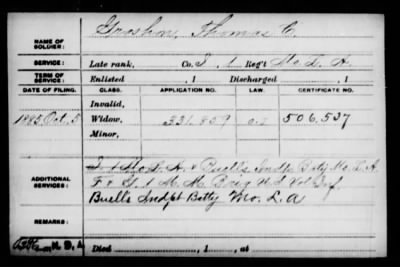 NAME OF SOLDIER: Groshon, Thomas C.
SERVICE: Late rank, Co. I, 1 Reg't Mo. L. A.
TERM OF SERVICE: Enlisted , 1 Discharged , 1
DATE OF FILING. CLASS. APPLICATION NO. LAW. CERTIFICATE NO.
Invalid,
1885 Oct. 5 Widow, 331.809 506.537
Minor,
ADDITIONAL SERVICES: I 1 Mo L. A. & Buells Indpt Baty Mo L. A
F & G. 1 N. M. Brig U.S. Vol Inf.
Buells Indpt Batty Mo. L. A
REMARKS:
Died , 1 , at